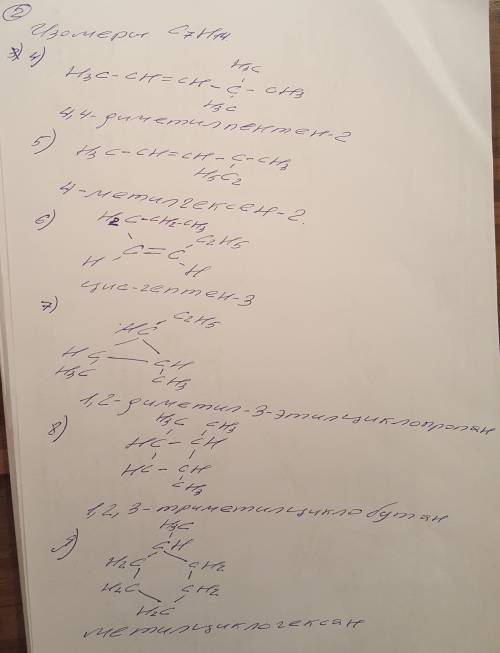 2
Изомери C7H14
3) 4)
H3C
H3C-CH=CH-C-CH3
H3C
4,4-диметилпентен-2
5)
H3C-CH=CH-C-CH3
H5C2
4-метилгексен-2.
6)
H2C-CH2-CH3
C2H5
C=C
H
H
цис-гептен-3
7)
C2H5
HC
HC
CH
H3C
CH3
1,2-диметил-3-этилциклопропан
8)
H3C CH3
HC-CH
HC-CH
CH3
1,2,3-триметилциклобутан
9)
H3C
CH
H2C CH2
H2C CH2
H2C
метилциклогексан